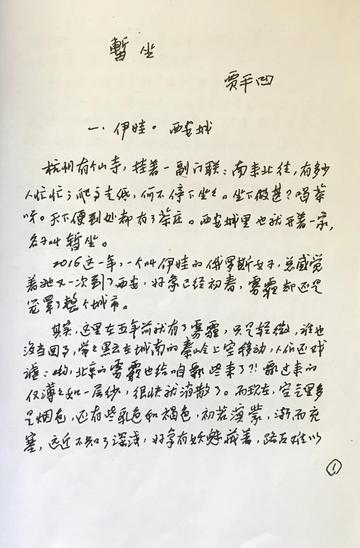 暂坐
贾平凹
一、伊娃。西安城
杭州有个山寺，挂着一副门联：南来北往，有多少
人忙忙；爬高走低，何不停下坐坐。坐下做甚？喝茶
呀。天下便到处都有了茶庄。西安城里也就开着一家，
名子叫暂坐。
2016这一年，一个叫伊娃的俄罗斯女子，总感觉
着她又一次到了西安，好象已经初春，雾霾却还是
笼罩了整个城市。
其实，这里在五年前就有了雾霾，只是轻微，谁也
没当回事，常常黑云在城南的秦岭上空移动，人们还戏
谑：哟，北京的雾霾也给咱飘些来了？！飘过来的
仅薄之如一层纱，很快就消散了。而现在，空气里多
是烟色，还有些乳色和褐色，初若溟蒙，渐而充
塞，远近不知了深浅，好象有妖魅藏着，路面难以
1